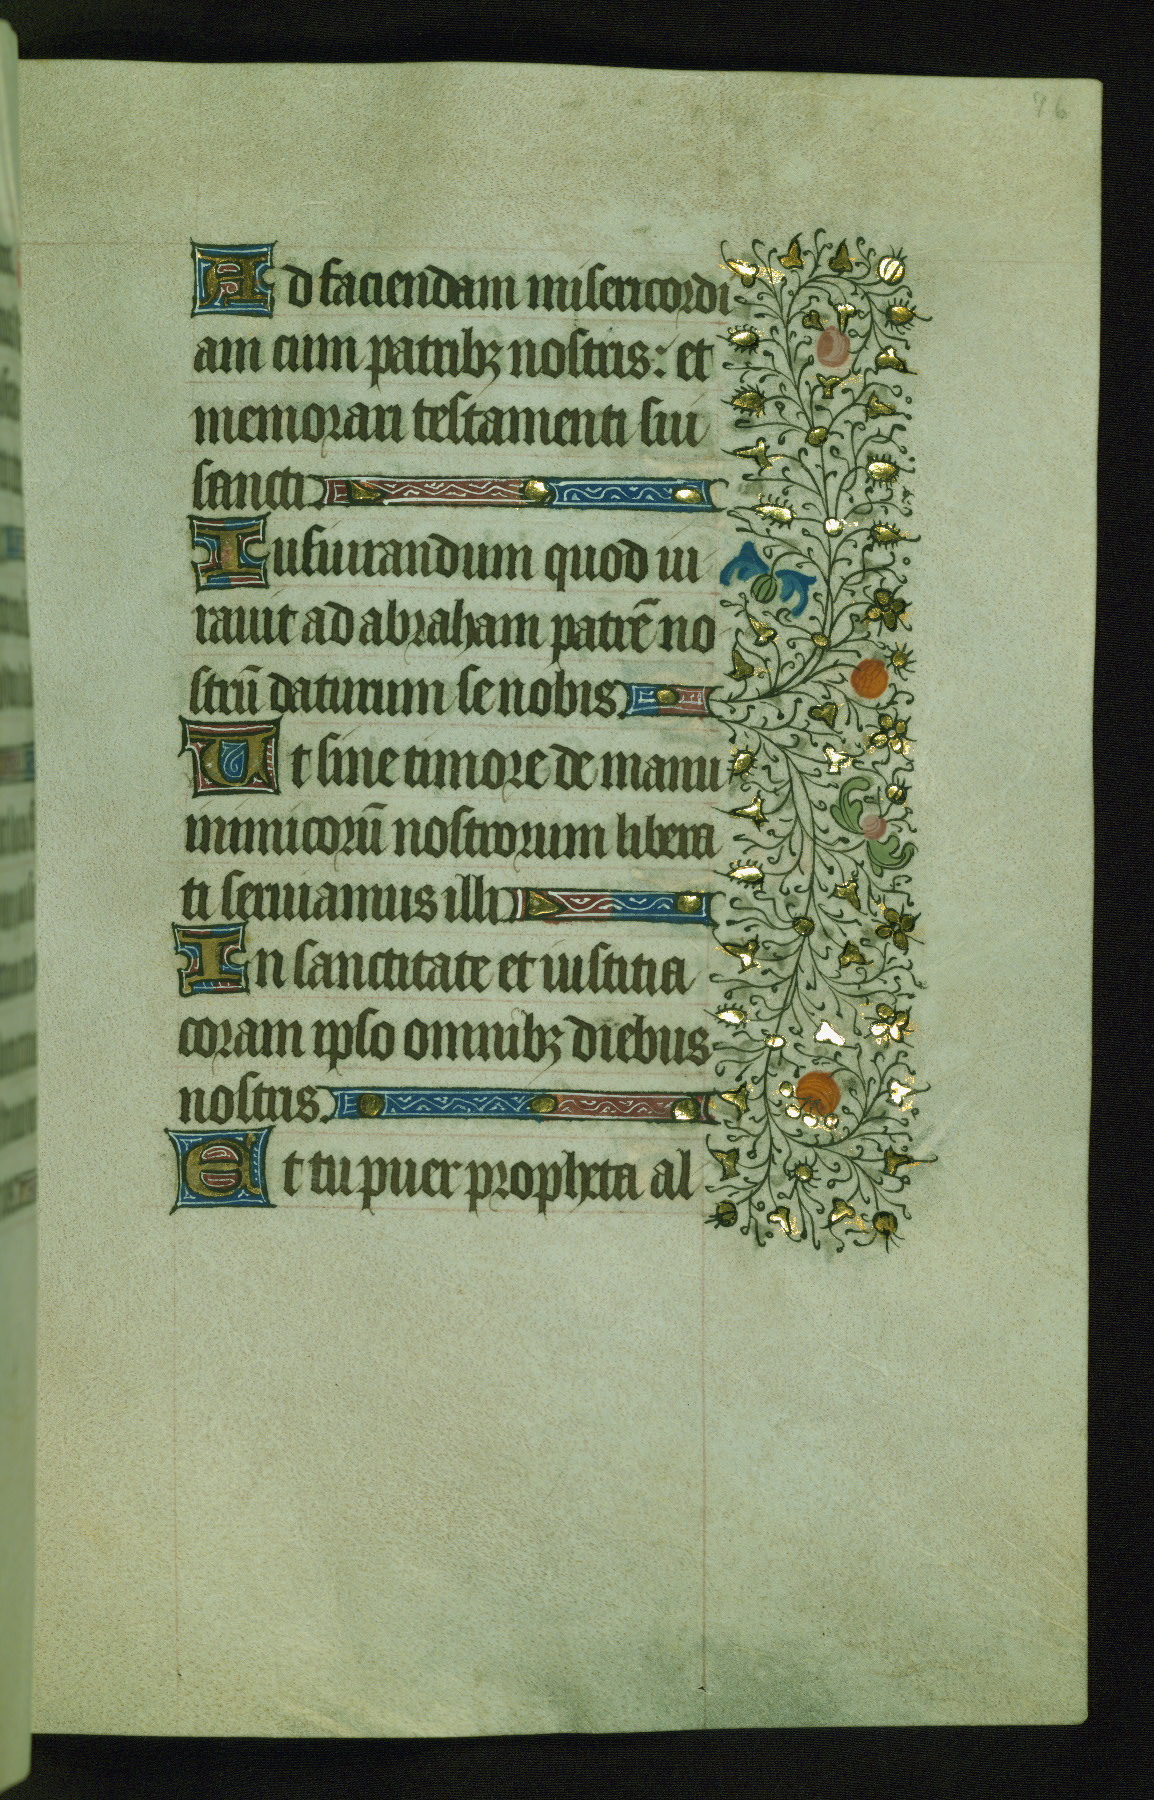 76
Ad faciendam misericordi
am cum patribꝫ nostris: et
memorari testamenti sui
sancti
Iusiurandum quod iu
rauit ad abraham patrē no
strū daturum se nobis
Ut sine timore de manu
inimicorū nostrorum libera
ti seruiamus illi
In sanctitate et iustitia
coram ipso omnibꝫ diebus
nostris.
Et tu puer propheta al